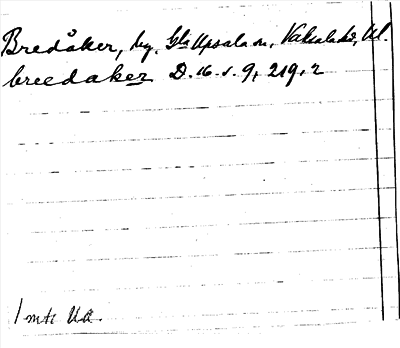 Bredåker, by, Gla Upsala sn, Vaksala hd, Upl.
breedaker D. 16. s. 9, 219, 2
1 mtl Uä.